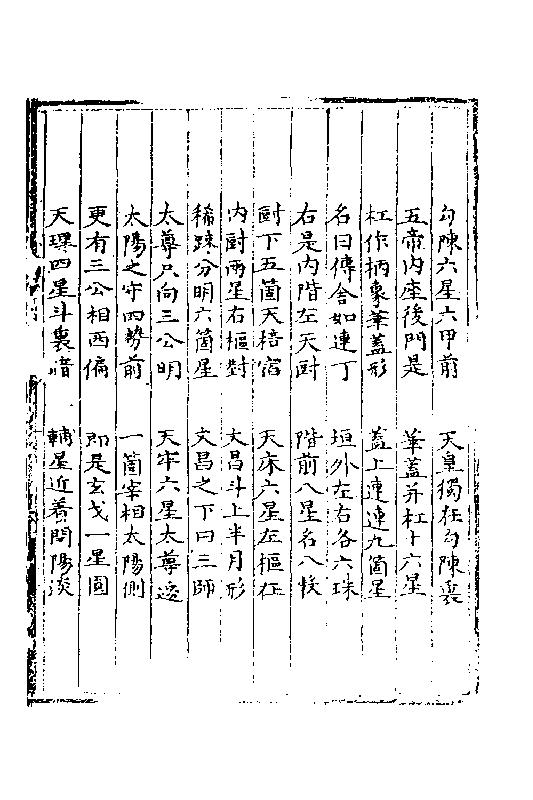 勾陳六星六甲前　天皇獨在勾陳裏
五帝内座後門是　華蓋并杠十六星
杠作柄象華蓋形　蓋上連連九箇星
名曰傳舍如連丁　垣外左右各六珠
右是内階左天厨　階前八星名八榖
厨下五箇天棓宿　天床六星左樞在
内厨兩星右樞對　文昌斗上半月形
稀踈分明六箇星　文昌之下曰三師
太尊只向三公明　天牢六星太尊邊
太陽之守四勢前　一箇宰相太陽側
更有三公相西偏　即是玄戈一星圓
天理四星斗裏暗　輔星近着闓陽淡